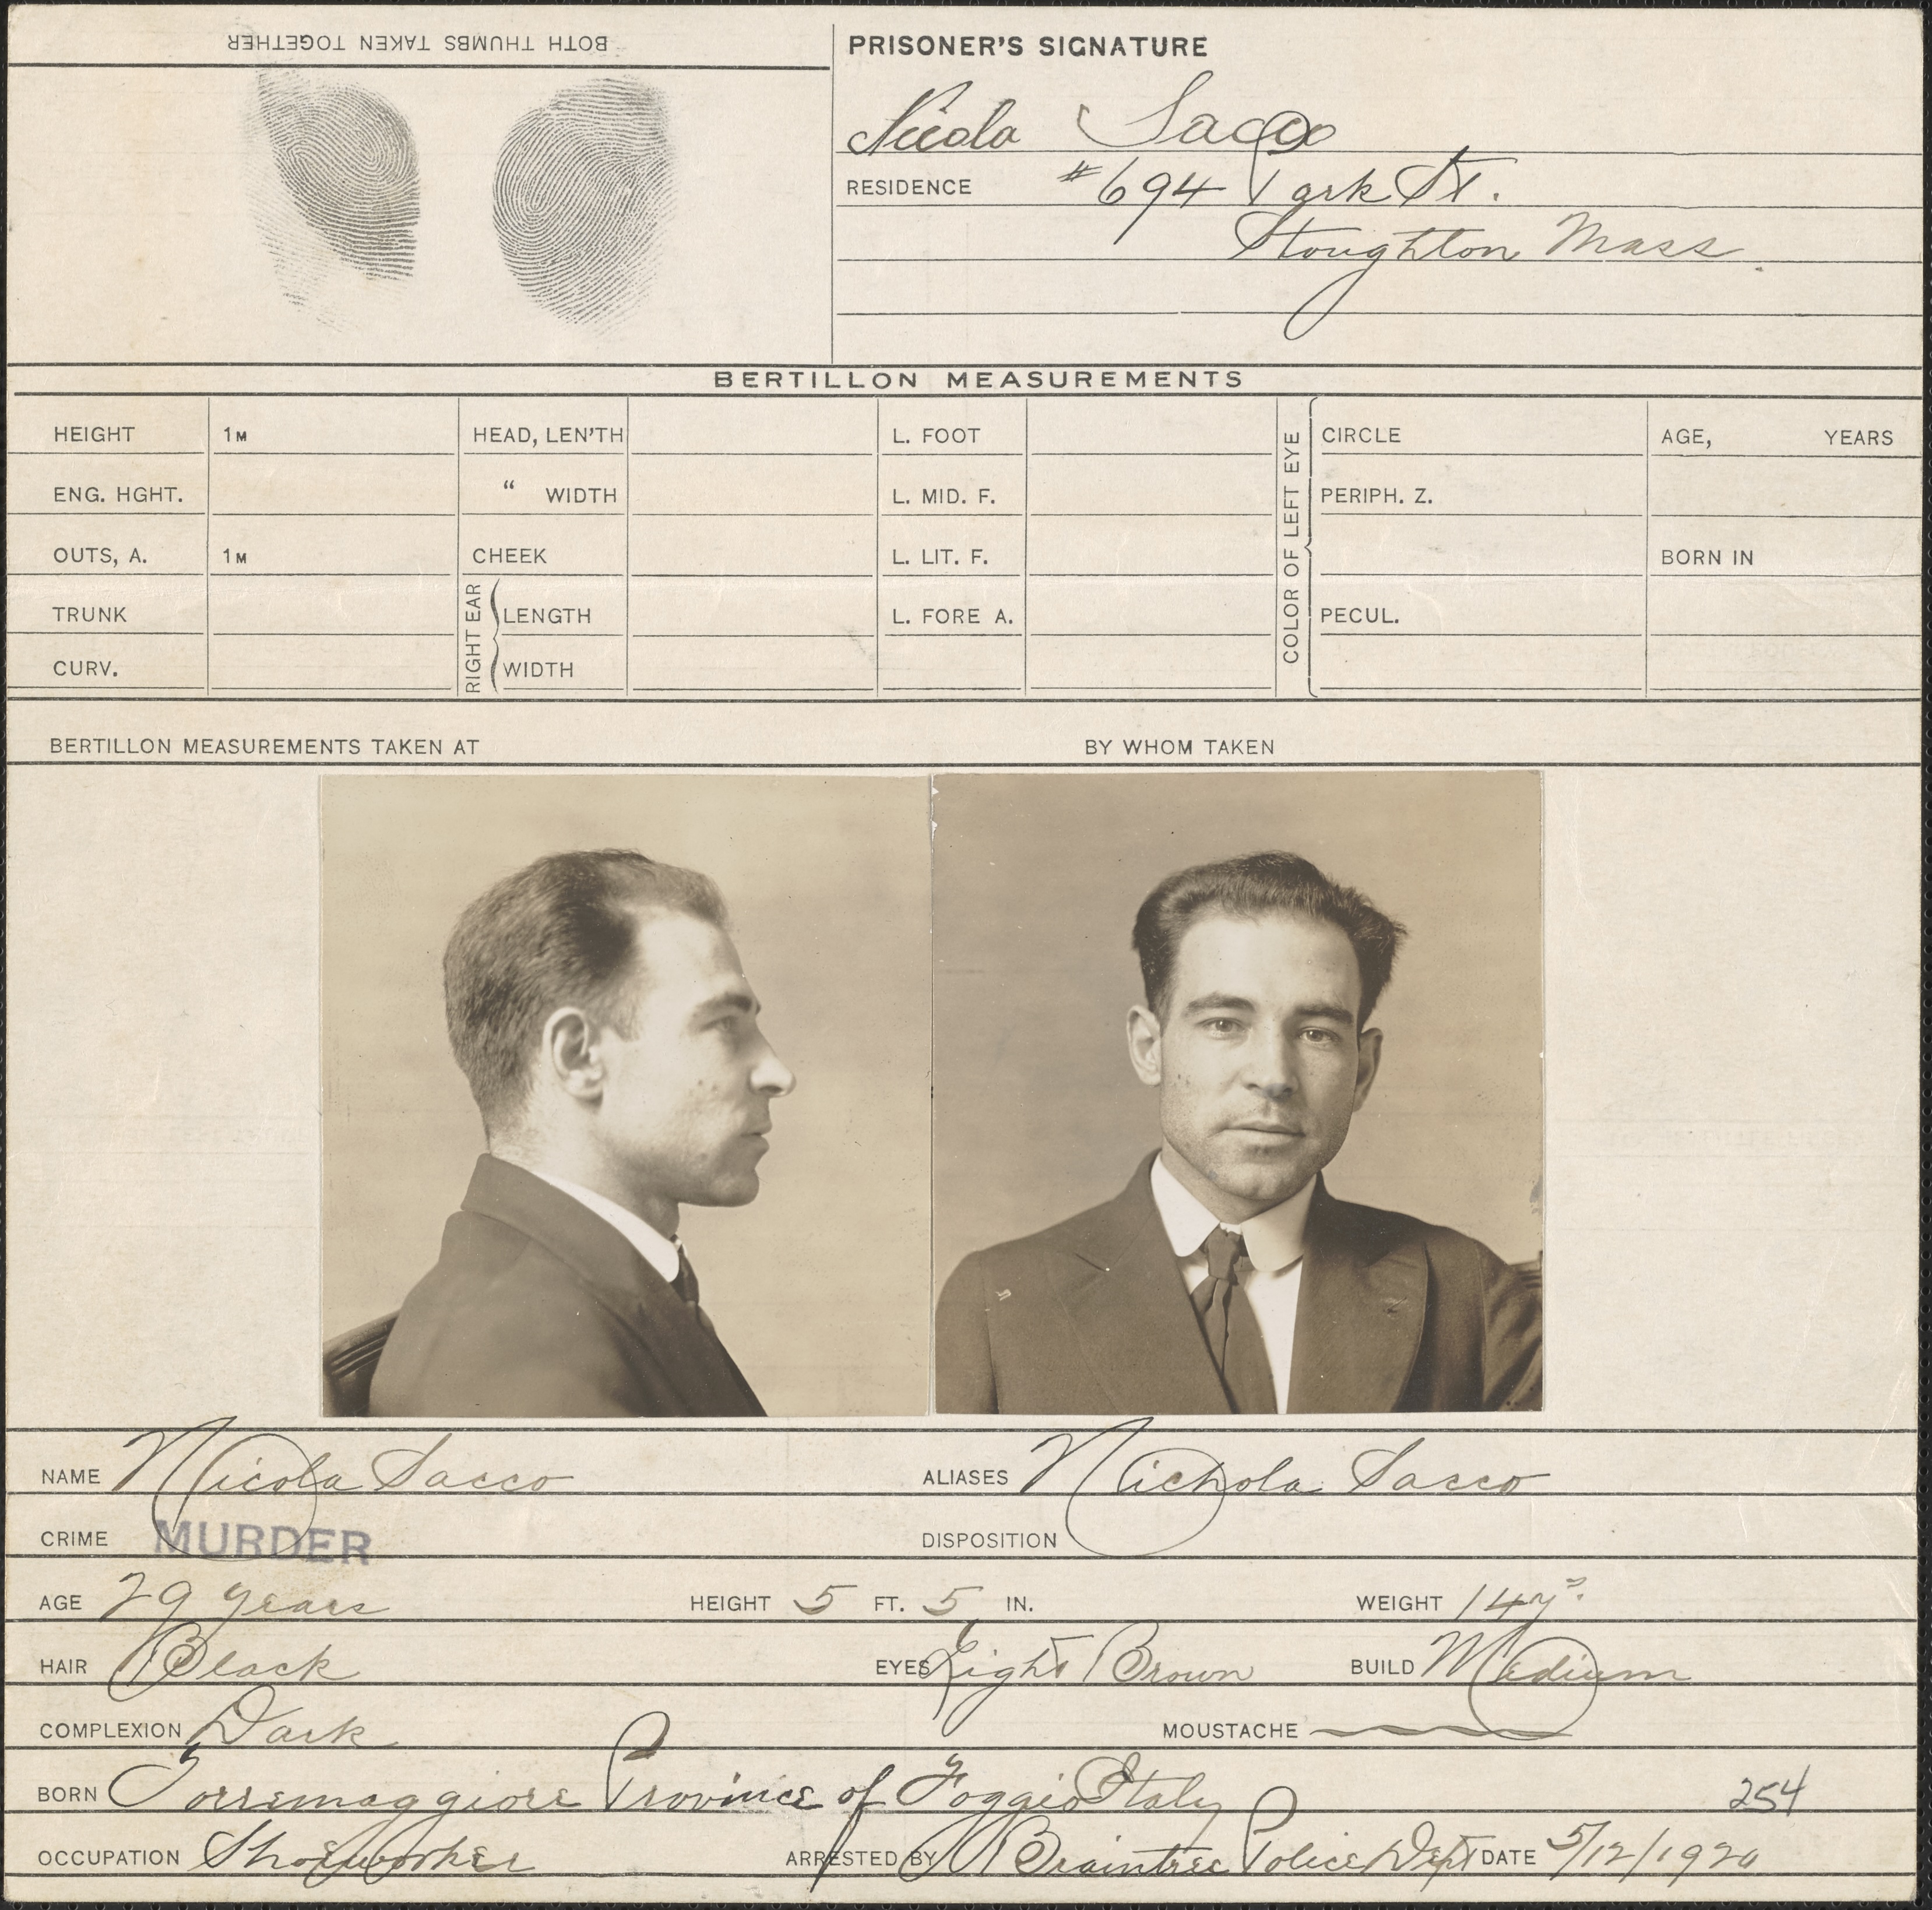 BOTH THUMBS TAKEN TOGETHER
PRISONER'S SIGNATURE
Nicola Sacco
RESIDENCE #694 Park St.
Stoughton Mass.
BERTILLON MEASUREMENTS
HEIGHT 1M HEAD, LEN'TH L. FOOT CIRCLE AGE, YEARS
ENG. HGHT. " WIDTH L. MID. F. PERIPH. Z.
OUTS, A. 1M CHEEK L. LIT. F. BORN IN
TRUNK LENGTH L. FORE A. PECUL.
CURV. WIDTH
RIGHT EAR
COLOR OF LEFT EYE
BERTILLON MEASUREMENTS TAKEN AT BY WHOM TAKEN
NAME Nicola Sacco ALIASES Nichola Sacco
CRIME MURDER DISPOSITION
AGE 29 years HEIGHT 5 FT. 5 IN. WEIGHT 147
HAIR Black EYES Light Brown BUILD Medium
COMPLEXION Dark MOUSTACHE
BORN Torremaggiore Province of Foggio Italy 254
OCCUPATION Shoeworker ARRESTED BY Braintree Police Dept DATE 5/12/1920